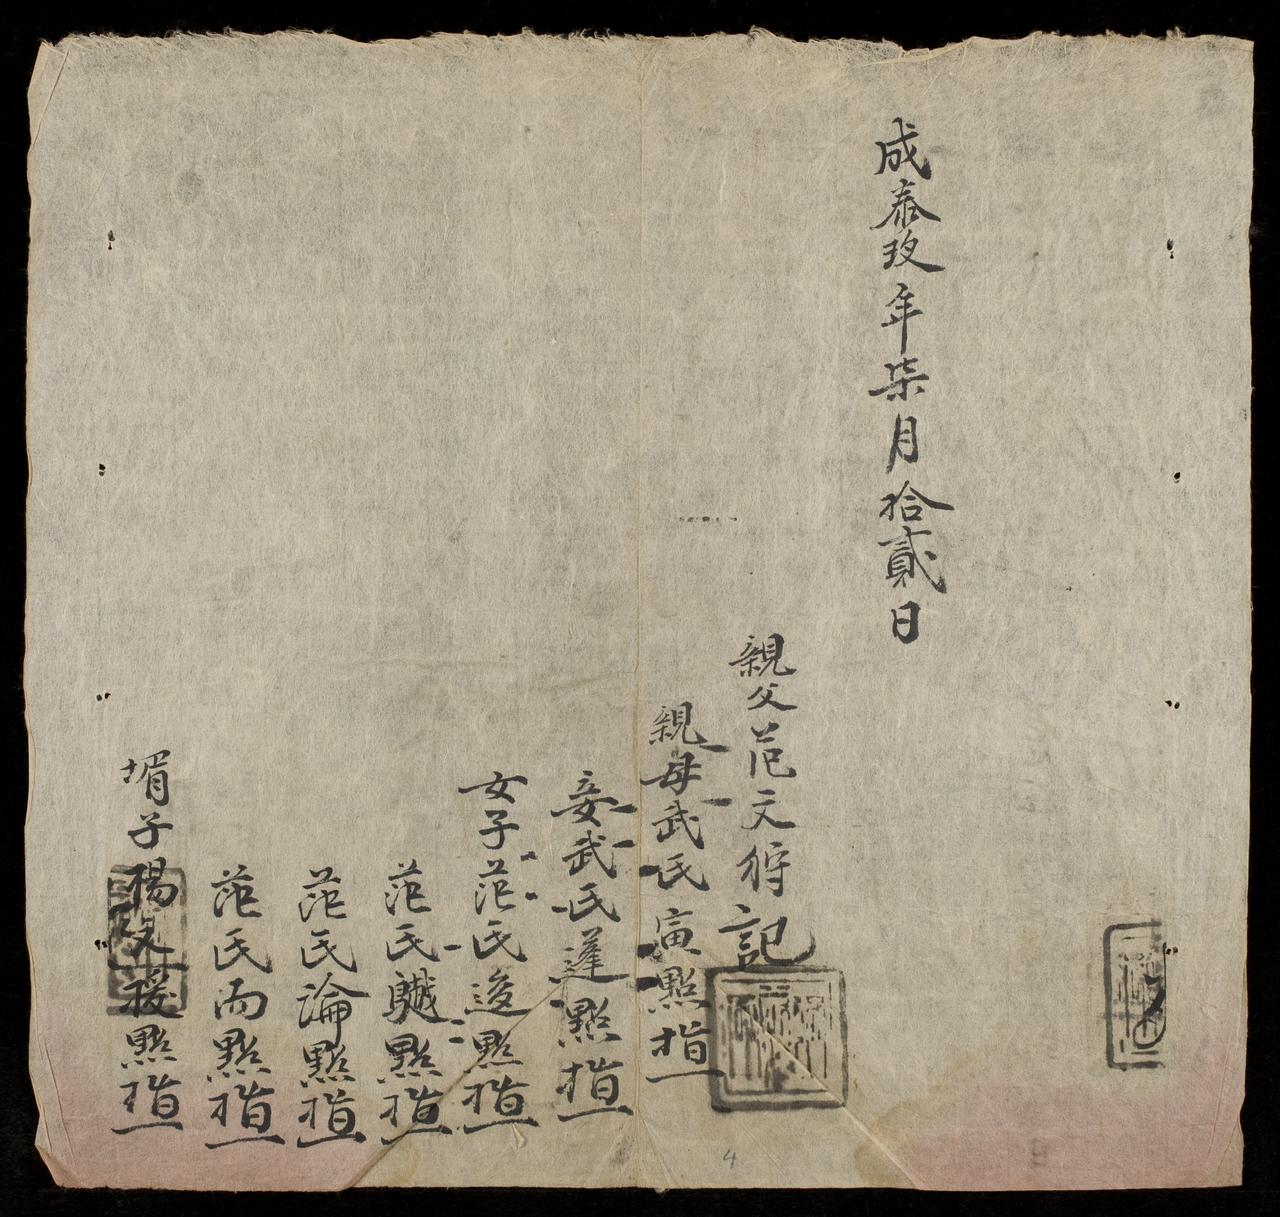 成泰玖年柒月拾貳日
親父范文狩記
親母武氏寅點指
妾武氏蓬點指
女子范氏逡點指
范氏點指
范氏論點指
范氏而點指
壻子楊文授點指
4